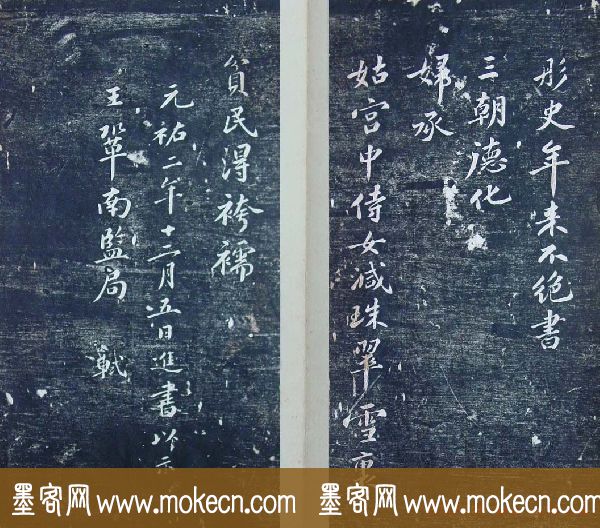 彤史年来不絶書
三朝德化
婦承
姑宮中侍女減珠翠雪裏
貧民得袴襦
元祐二年十二月五日進書以示
王鞏南監局 軾
墨客网 www.mokecn.com
墨客网 www.mokecn.com